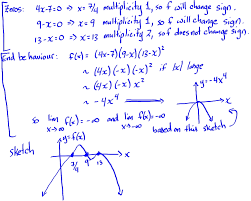 Zeros: 4x-7=0 ⇒ x=7/4 multiplicity 1, so f will change sign.
9-x=0 ⇒ x=9 multiplicity 1, so f will change sign.
13-x=0 ⇒ x=13 multiplicity 2, so f does not change sign.
End behaviour: f(x) = (4x-7)(9-x)(13-x)²
~ (4x)(-x)(-x)² if |x| large
~ (4x)(-x) x²
~ -4x⁴
y=-4x⁴
x
So lim x→∞ f(x) = -∞ and lim x→-∞ f(x) = -∞
based on this sketch
sketch
y=f(x)
7/4 9 13 x